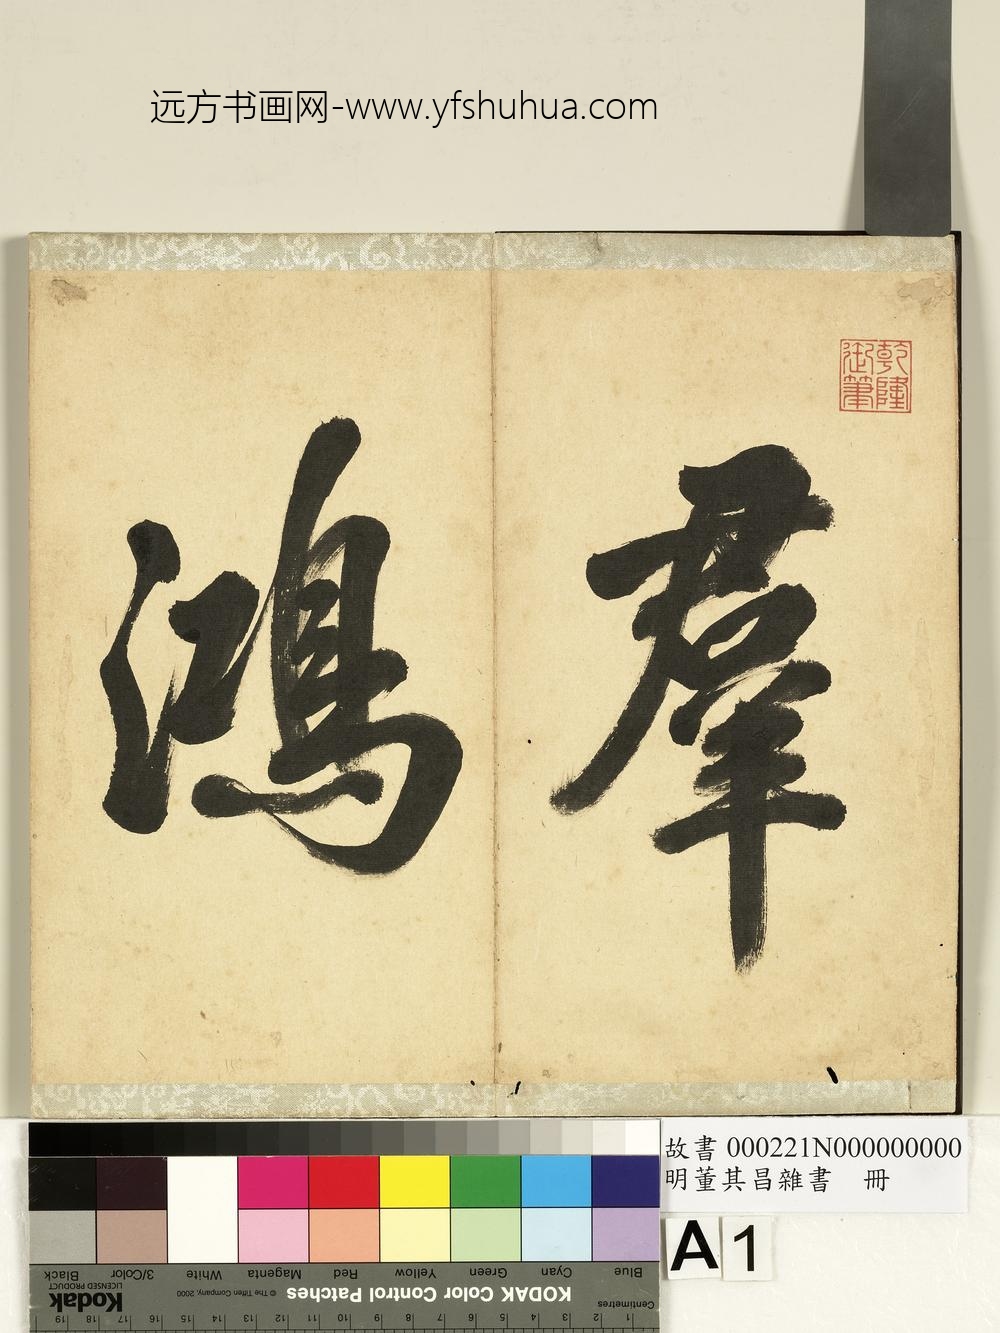 远方书画网-www.yfshuhua.com
乾隆
御筆
羣
鴻
故書 000221N000000000
明董其昌雜書 冊
A 1
Blue Cyan Green Yellow Red Magenta White 3/Color Black
KODAK Color Control Patches © The Tiffen Company, 2000 Kodak
LICENSED PRODUCT
Centimetres 1 2 3 4 5 6 7 8 9 10 11 12 13 14 15 16 17 18 19